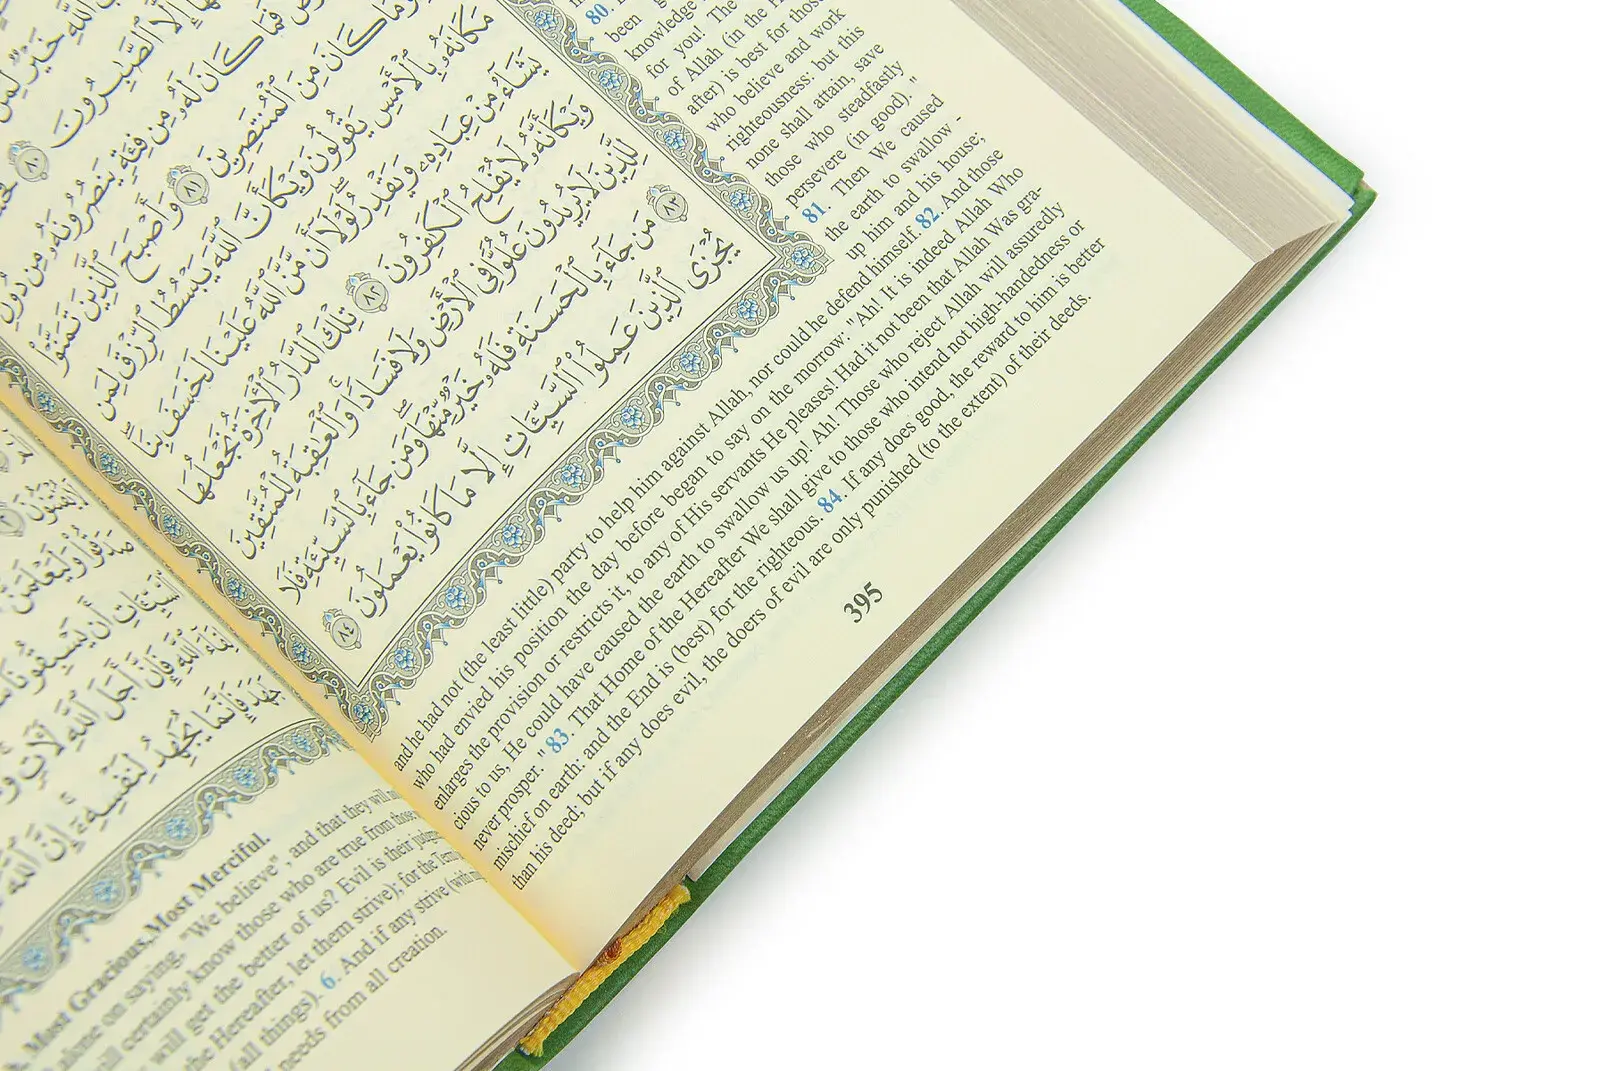 ٱللَّهِ خَيْرٌ لِّمَنْ
إِلَّا ٱلصَّـٰبِرُونَ ٨٠
فَمَا كَانَ لَهُۥ مِن فِئَةٍ يَنصُرُونَهُۥ مِن دُونِ
وَمَا كَانَ مِنَ ٱلْمُنتَصِرِينَ ٨١ وَأَصْبَحَ ٱلَّذِينَ تَمَنَّوْا۟
مَكَانَهُۥ بِٱلْأَمْسِ يَقُولُونَ وَيْكَأَنَّ ٱللَّهَ يَبْسُطُ ٱلرِّزْقَ لِمَن
يَشَآءُ مِنْ عِبَادِهِۦ وَيَقْدِرُ ۖ لَوْلَآ أَن مَّنَّ ٱللَّهُ عَلَيْنَا لَخَسَفَ بِنَا ۖ
وَيْكَأَنَّهُۥ لَا يُفْلِحُ ٱلْكَـٰفِرُونَ ٨٢ تِلْكَ ٱلدَّارُ ٱلْـَٔاخِرَةُ نَجْعَلُهَا
لِلَّذِينَ لَا يُرِيدُونَ عُلُوًّا فِى ٱلْأَرْضِ وَلَا فَسَادًا ۚ وَٱلْعَـٰقِبَةُ لِلْمُتَّقِينَ
٨٣ مَن جَآءَ بِٱلْحَسَنَةِ فَلَهُۥ خَيْرٌ مِّنْهَا ۖ وَمَن جَآءَ بِٱلسَّيِّئَةِ فَلَا
يُجْزَى ٱلَّذِينَ عَمِلُوا۟ ٱلسَّيِّـَٔاتِ إِلَّا مَا كَانُوا۟ يَعْمَلُونَ ٨٤
80.
been
knowledge
for you! The
of Allah (in the
after) is best for those
who believe and work
righteousness: but this
none shall attain, save
those who steadfastly
persevere (in good)."
81. Then We caused
the earth to swallow -
up him and his house;
and he had not (the least little) party to help him against Allah, nor could he defend himself. 82. And those
who had envied his position the day before began to say on the morrow: "Ah! It is indeed Allah Who
enlarges the provision or restricts it, to any of His servants He pleases! Had it not been that Allah Was gra-
cious to us, He could have caused the earth to swallow us up! Ah! Those who reject Allah will assuredly
never prosper." 83. That Home of the Hereafter We shall give to those who intend not high-handedness or
mischief on earth: and the End is (best) for the righteous. 84. If any does good, the reward to him is better
than his deed; but if any does evil, the doers of evil are only punished (to the extent) of their deeds.
395
أَن يَسْبِقُونَا
فَإِنَّ أَجَلَ ٱللَّهِ لَـَٔاتٍ
فَإِنَّمَا يُجَـٰهِدُ لِنَفْسِهِۦٓ ۚ إِنَّ ٱللَّهَ
Most Gracious, Most Merciful.
alone on saying, "We believe", and that they will
certainly know those who are true from those
will get the better of us? Evil is their
the Hereafter, let them strive); for the
(all things). 6. And if any strive (with
needs from all creation.